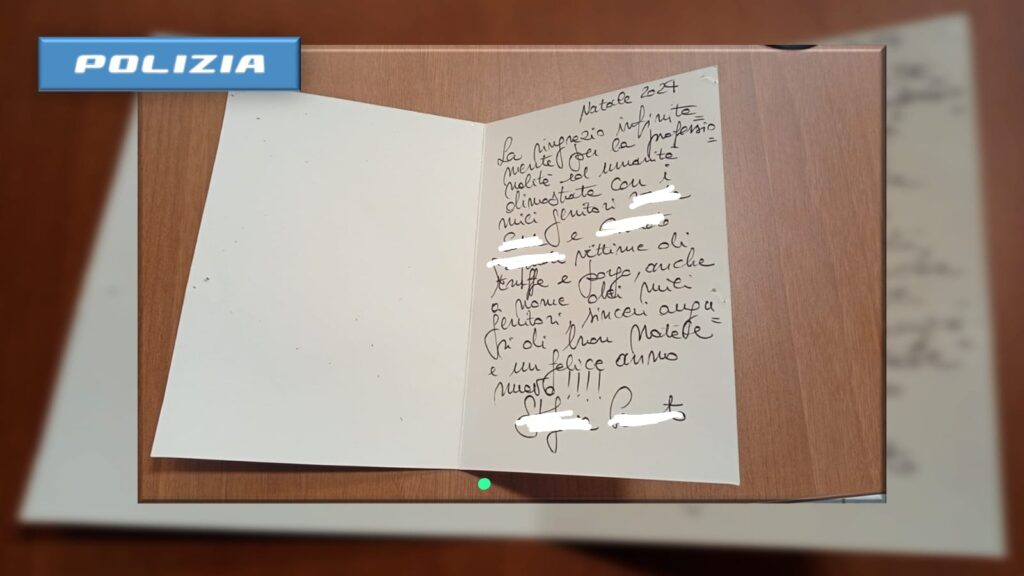 POLIZIA
Natale 2024
La ringrazio infinita=
mente per la professio
nalità ed umanità =
dimostrate con i
miei genitori
e
vittime di
truffe e porgo, anche
a nome dei miei
genitori, sinceri augu
ri di buon Natale =
e un felice anno
nuovo!!!!